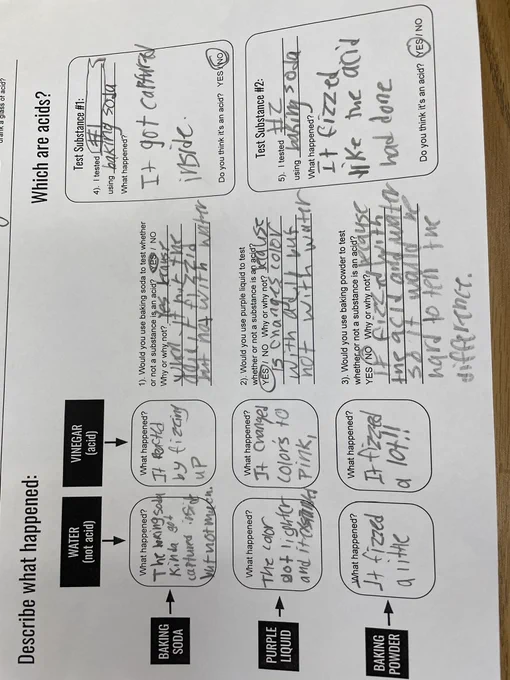 drank a glass of acid?
Describe what happened:
WATER
(not acid)
VINEGAR
(acid)
BAKING
SODA
What happened?
The baking soda
Kinda got
captured inside
but not much.
What happened?
It
by fizzing
up
PURPLE
LIQUID
What happened?
The color
got lighter
and it
What happened?
It changed
colors to
Pink,
BAKING
POWDER
What happened?
It fizzed
a little
What happened?
It fizzed
a lot!!
1). Would you use baking soda to test whether
or not a substance is an acid? YES / NO
Why or why not? because
the
acid it fizzid
but not with water
2). Would you use purple liquid to test
whether or not a substance is an acid?
YES / NO Why or why not? because
is changes color
with acid but
not with water
3). Would you use baking powder to test
whether or not a substance is an acid?
YES / NO Why or why not? because
It fizzed with
the acid and water
so it would be
hard to tell the
difference.
Which are acids?
Test Substance #1:
4). I tested #1
using baking soda
What happened?
It got captured
inside.
Do you think it's an acid? YES / NO
Test Substance #2:
5). I tested #2
using baking soda
What happened?
It fizzed
like the acid
had done
Do you think it's an acid? YES / NO